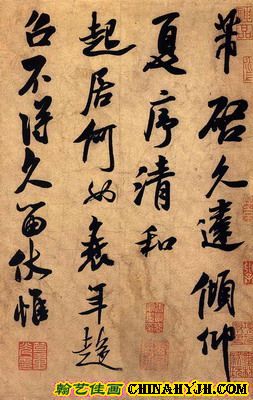 芾启久違傾仰
夏序清和
起居何如衰年趨
召不得久留伏惟
翰艺佳画 CHINAHYJH.COM